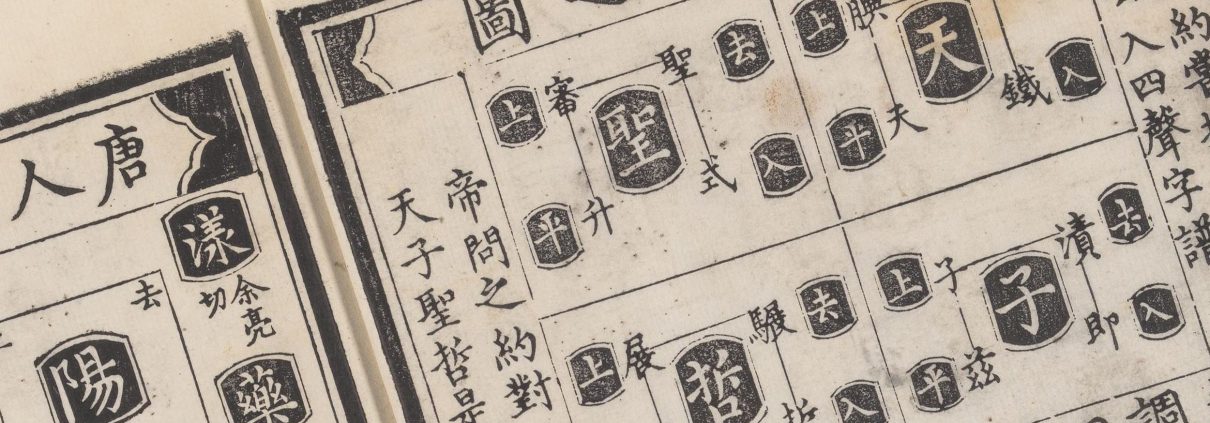 約嘗
入四聲字譜
圖
天
上 腆
平 天
入 鐵
聖
平 升
上 審
去 聖
入 式
子
平 茲
上 子
去 漬
入 即
哲
上 展
去
入 哲
調
帝問之約對
天子聖哲是
唐人
漾
余亮切
去
陽
藥